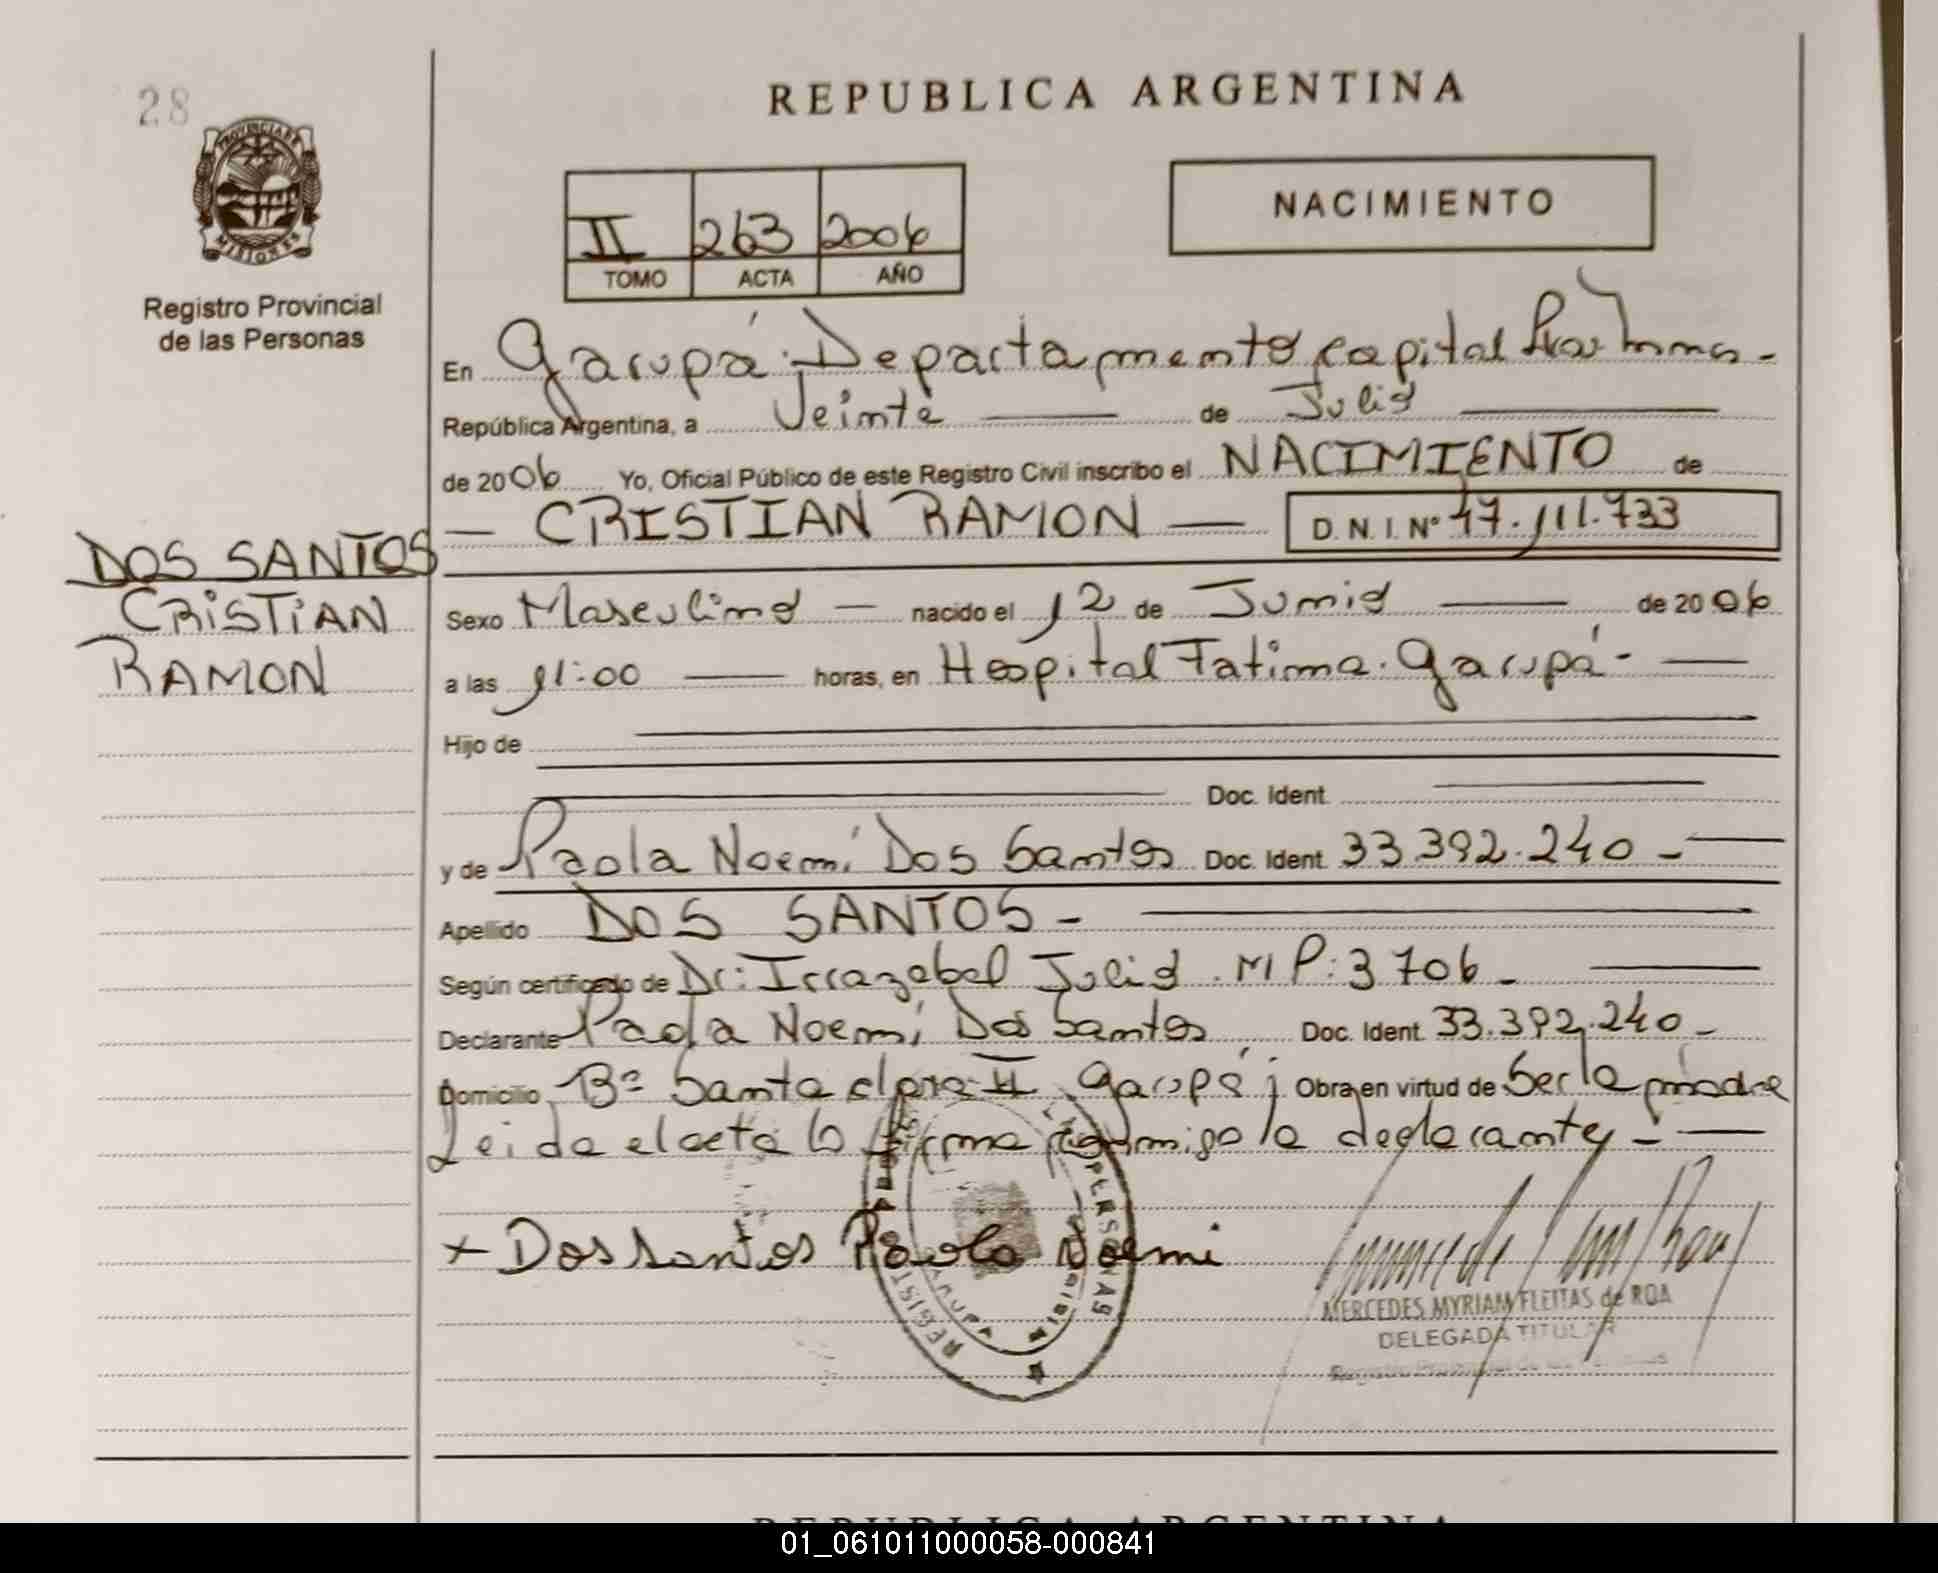 28
REPUBLICA ARGENTINA
PROVINCIA DE
MISIONES
Registro Provincial
de las Personas
NACIMIENTO
II 263 2006
TOMO ACTA AÑO
En Garupá. Departamento Capital
República Argentina, a Veinte de Julio
de 2006 Yo, Oficial Público de este Registro Civil inscribo el NACIMIENTO de
CRISTIAN RAMON D.N.I. Nº 47.111.733
DOS SANTOS
CRISTIAN
RAMON
Sexo Masculino nacido el 12 de Junio de 2006
a las 11:00 horas, en Hospital Fatima. Garupá-
Hijo de
Doc. Ident.
y de Paola Noemi Dos Santos Doc. Ident. 33.392.240-
Apellido DOS SANTOS-
Según certificado de Dr: Irrazabal Julio. MP: 3706-
Declarante Paola Noemi Dos Santos Doc. Ident. 33.392.240-
Domicilio Bº Santa Clara II Garupá; Obra en virtud de Ser la madre
Leida el acta la firma conmigo la declarante-
x Dos Santos Paola Noemi
REGISTRO PERSONAS
MERCEDES MYRIAM FLEITAS de ROA
DELEGADA TITULAR
Registro Provincial de las Personas
REPUBLICA ARGENTINA
01_061011000058-000841